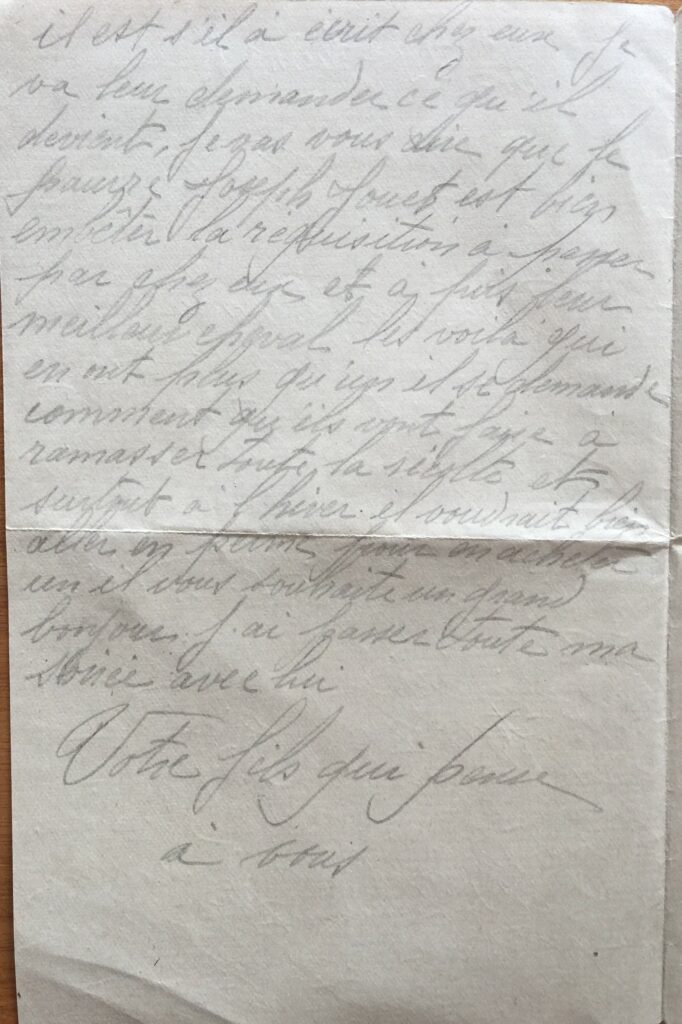 il est s'il à écrit chez eux je
va leur demander ce qu'il
devient, je vas vous dire que le
pauvre Joseph Jouet est bien
embêter la réquisition à passer
par chez eux et à pris leur
meilleur cheval les voilà qui
en ont plus qu'un il se demande
comment qu'ils vont faire à
ramasser toute la récolte et
surtout à l'hiver il voudrait bien
aller en perme pour en acheter
un il vous souhaite un grand
bonjour. J'ai passer toute ma
soirée avec lui
Votre fils qui pense
à vous